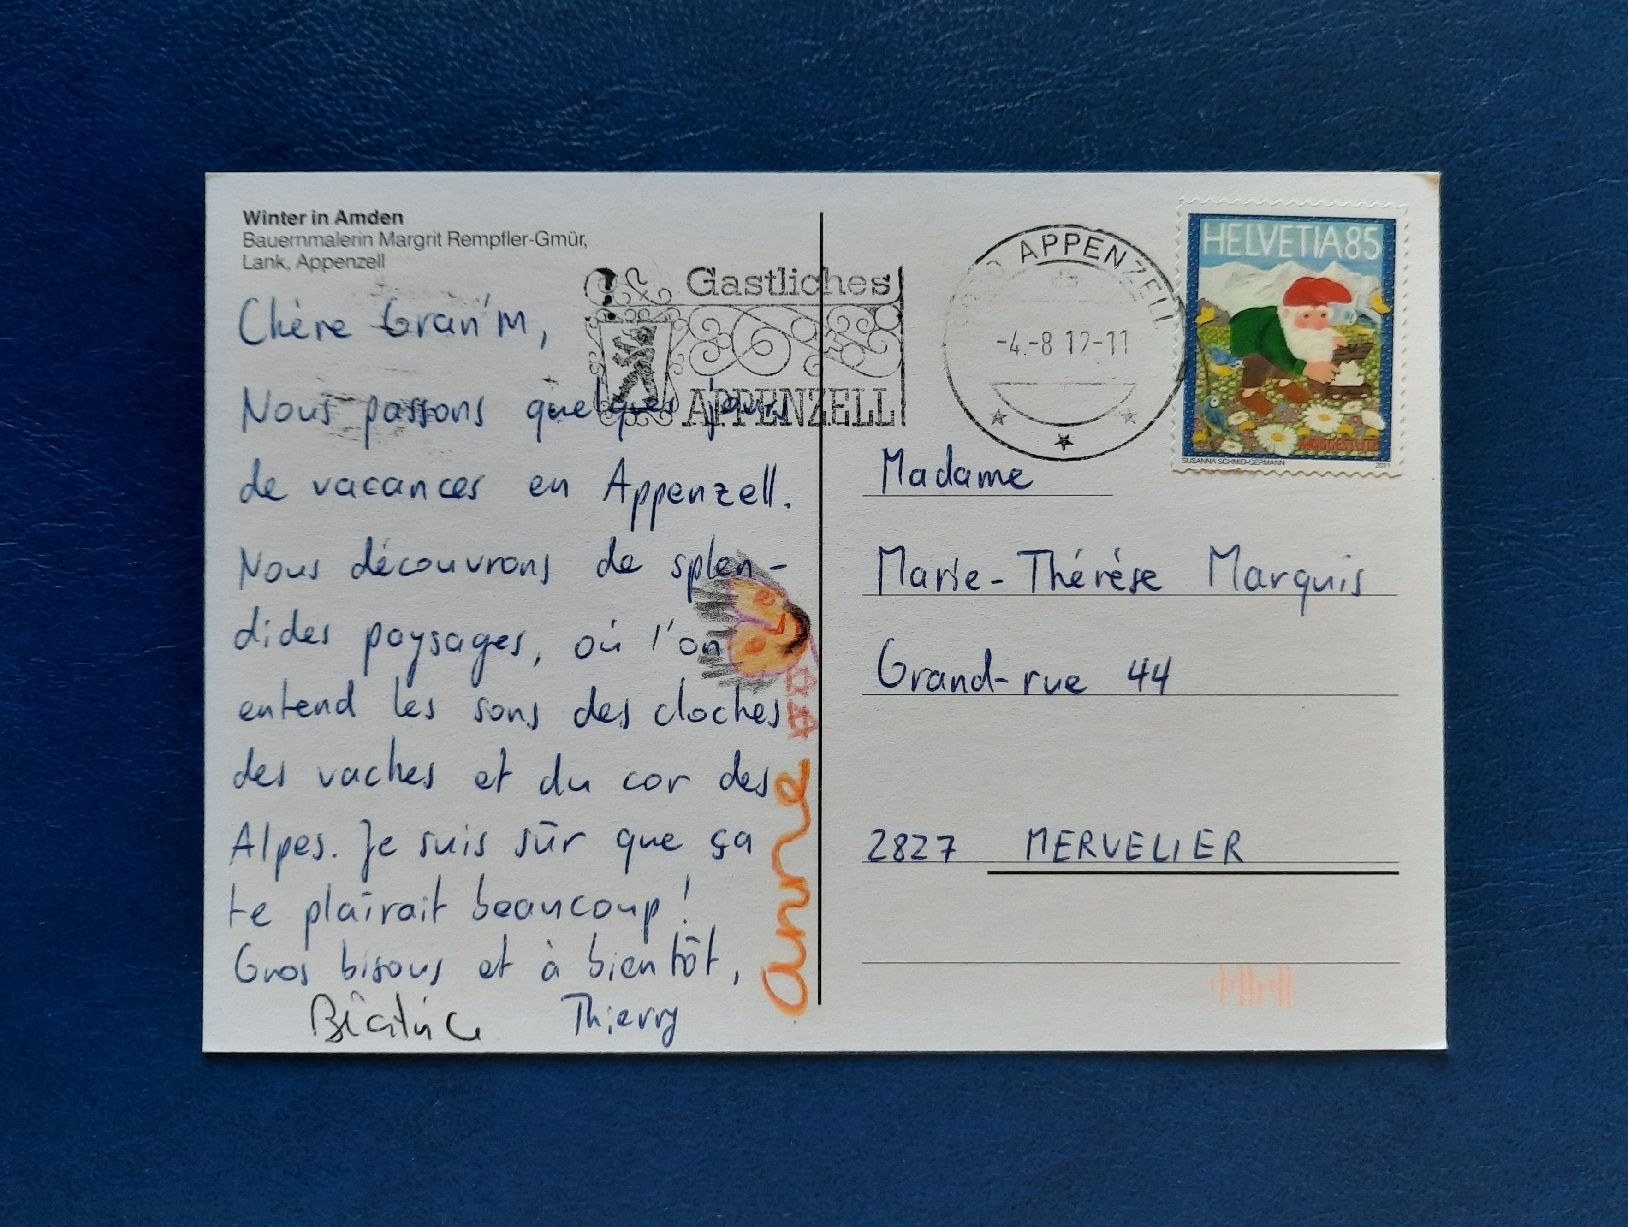 Winter in Amden
Bauernmalerin Margrit Rempfler-Gmür,
Lank, Appenzell
Chère Gran'M,
Nous passons quelques jours
de vacances en Appenzell.
Nous découvrons de splen-
dides paysages, où l'on
entend les sons des cloches
des vaches et du cor des
Alpes. Je suis sûr que ça
te plairait beaucoup !
Gros bisous et à bientôt,
Béatrice Thierry
anne
Gastliches
APPENZELL
APPENZELL
-4.-8 12-11
HELVETIA 85
SUSANNA SCHMID-GERMANN 2011
Madame
Marie-Thérèse Marquis
Grand-rue 44
2827 MERVELIER